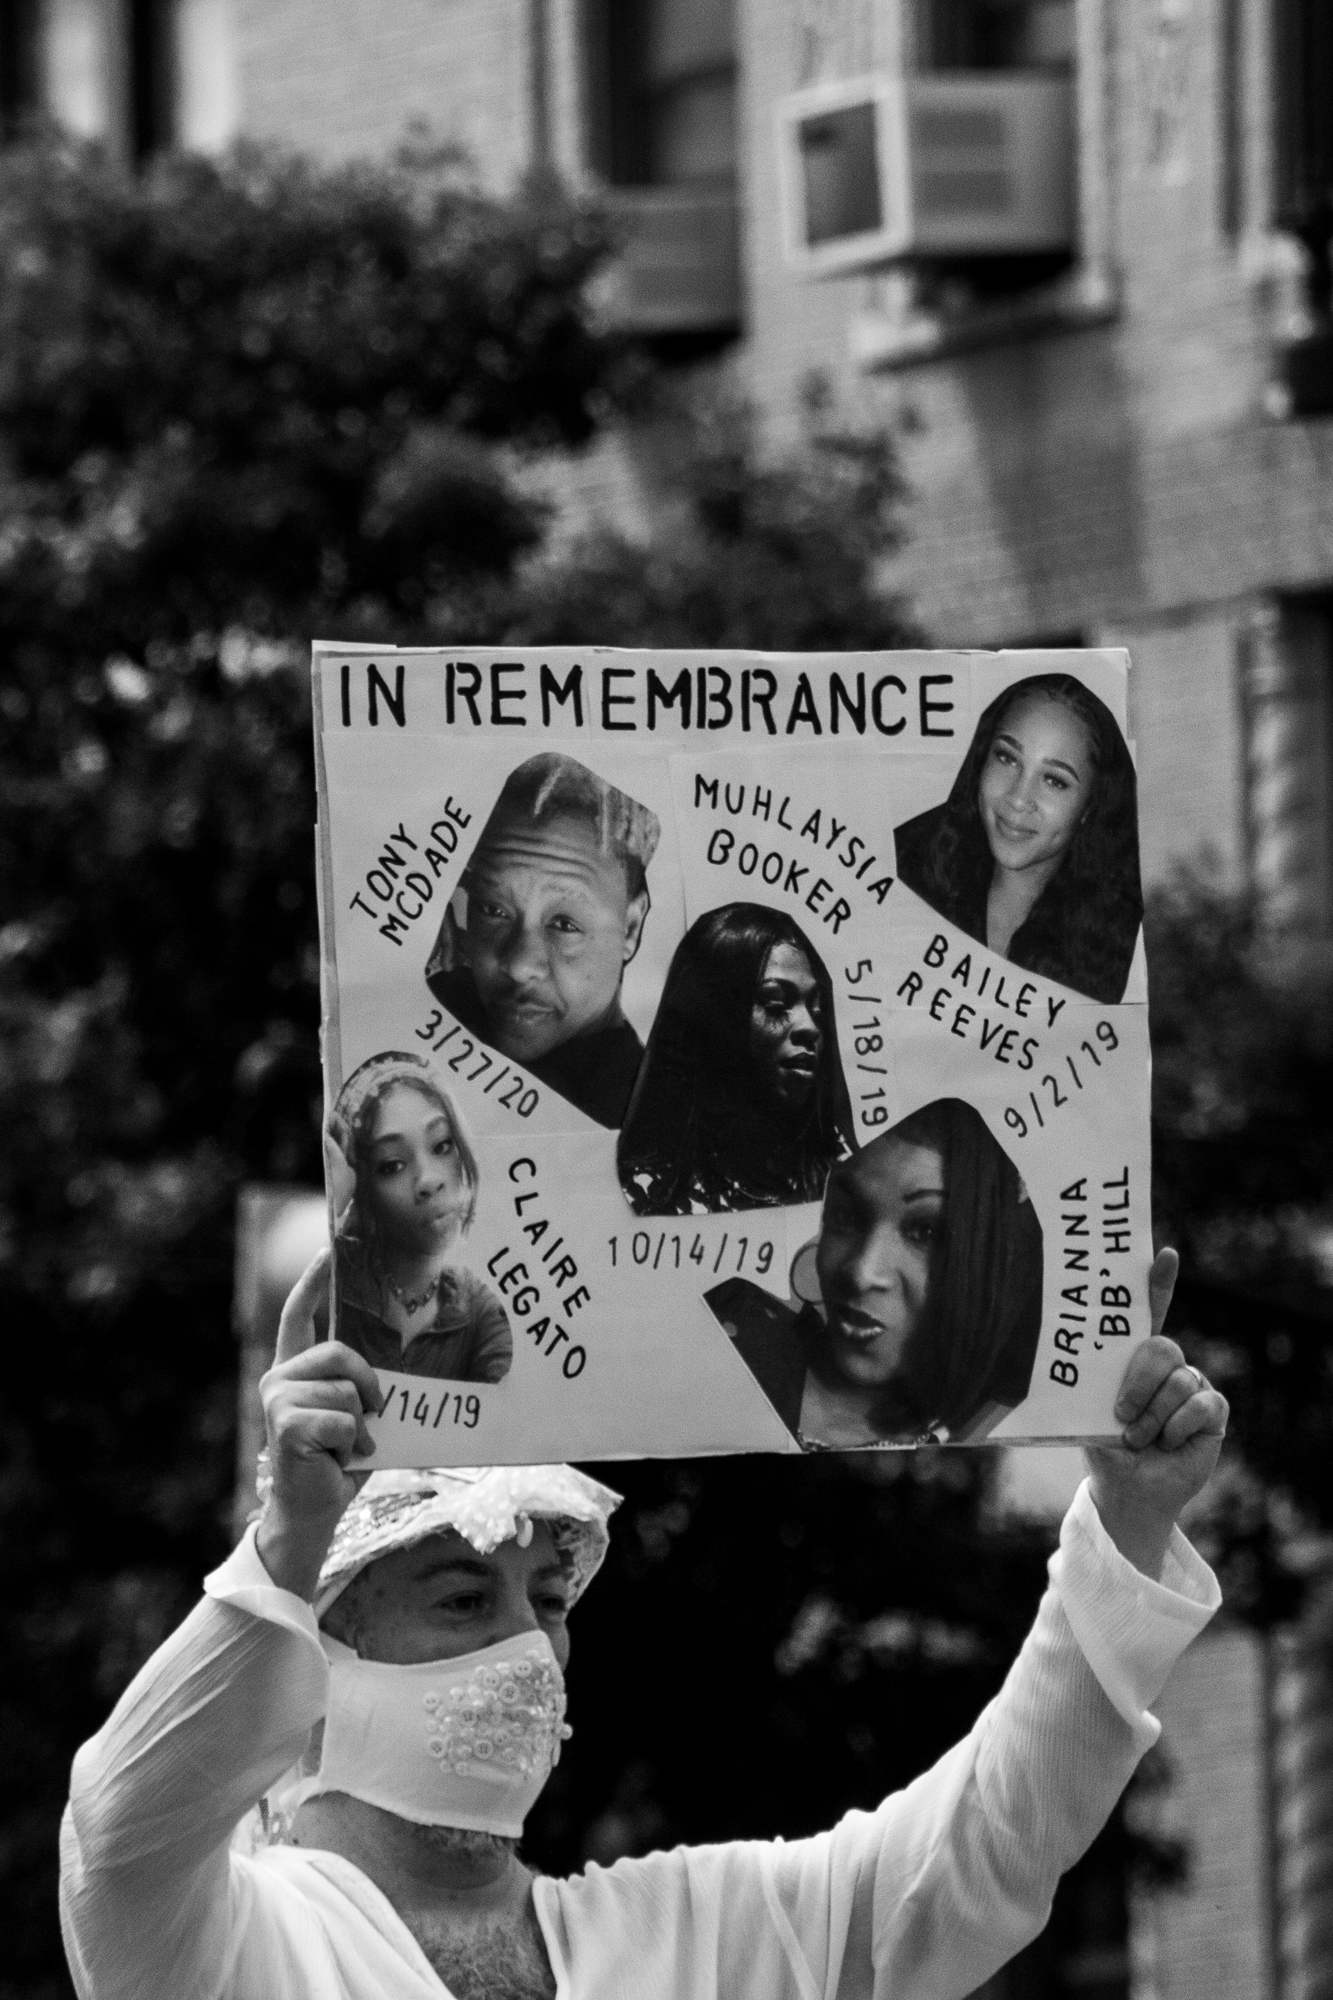 IN REMEMBRANCE
TONY
MCDADE
3/27/20
MUHLAYSIA
BOOKER
5/18/19
BAILEY
REEVES
9/2/19
CLAIRE
LEGATO
/14/19
10/14/19
BRIANNA
'BB' HILL